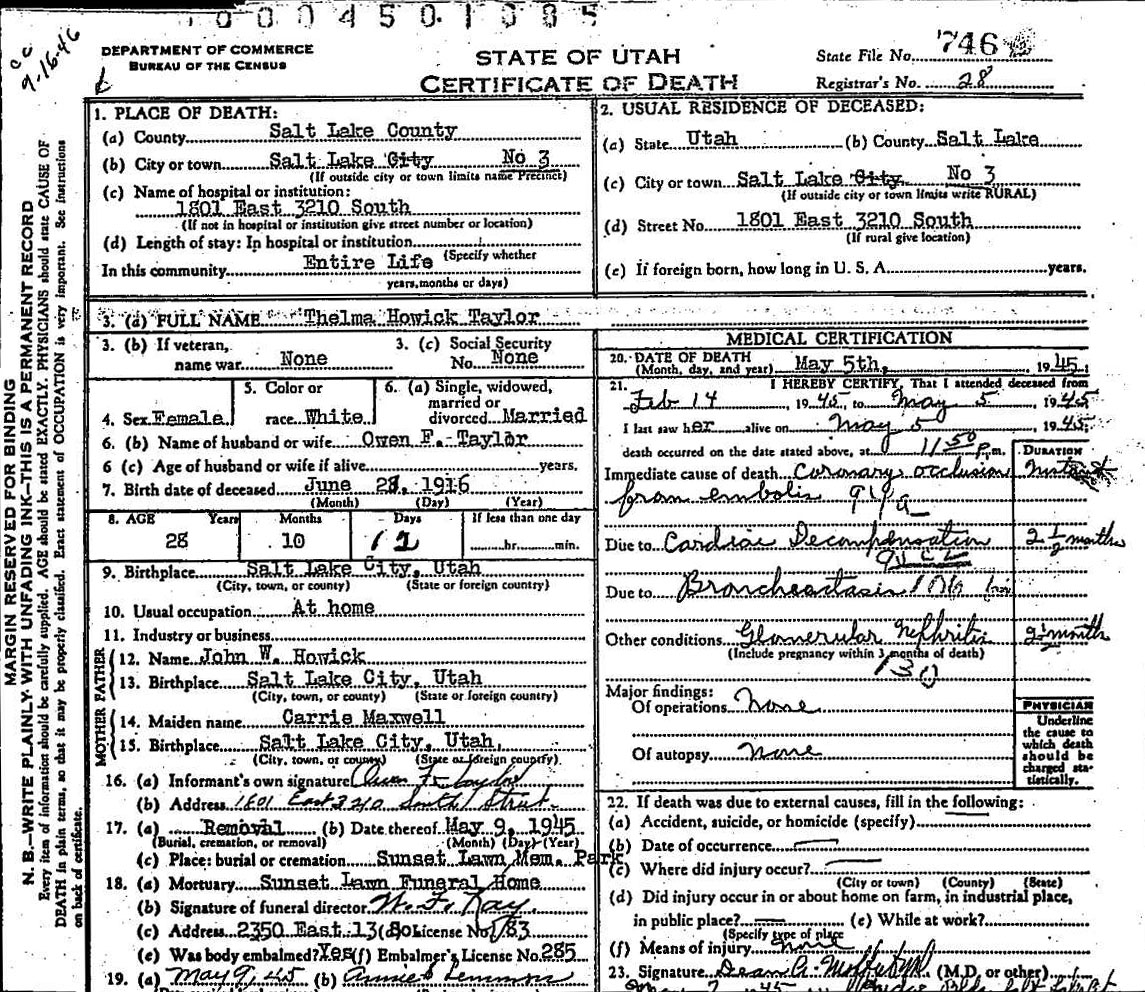 0004501085
CC
9-16-46
DEPARTMENT OF COMMERCE
BUREAU OF THE CENSUS
STATE OF UTAH
CERTIFICATE OF DEATH
State File No. 746
Registrar's No. 28
MARGIN RESERVED FOR BINDING
N. B.—WRITE PLAINLY WITH UNFADING INK—THIS IS A PERMANENT RECORD
Every item of information should be carefully supplied. AGE should be stated EXACTLY. PHYSICIANS should state CAUSE OF
DEATH in plain terms, so that it may be properly classified. Exact statement of OCCUPATION is very important. See instructions
on back of certificate.
1. PLACE OF DEATH:
(a) County Salt Lake County
(b) City or town Salt Lake City No 3
(If outside city or town limits name Precinct)
(c) Name of hospital or institution:
1801 East 3210 South
(If not in hospital or institution give street number or location)
(d) Length of stay: In hospital or institution
(Specify whether
In this community Entire Life
years, months or days)
2. USUAL RESIDENCE OF DECEASED:
(a) State Utah (b) County Salt Lake
(c) City or town Salt Lake City. No 3
(If outside city or town limits write RURAL)
(d) Street No. 1801 East 3210 South
(If rural give location)
(e) If foreign born, how long in U. S. A. years.
3. (a) FULL NAME Thelma Howick Taylor
3. (b) If veteran, name war None
3. (c) Social Security No. None
4. Sex Female
5. Color or race White
6. (a) Single, widowed, married or divorced Married
6. (b) Name of husband or wife Owen F. Taylor
6 (c) Age of husband or wife if alive years.
7. Birth date of deceased June 23, 1916
(Month) (Day) (Year)
8. AGE Years Months Days If less than one day
28 10 12 hr. min.
9. Birthplace Salt Lake City, Utah
(City, town, or county) (State or foreign country)
10. Usual occupation At home
11. Industry or business
FATHER
12. Name John W. Howick
13. Birthplace Salt Lake City, Utah
(City, town, or county) (State or foreign country)
MOTHER
14. Maiden name Carrie Maxwell
15. Birthplace Salt Lake City, Utah,
(City, town, or county) (State or foreign country)
16. (a) Informant's own signature Owen F. Taylor
(b) Address 1801 East 3210 South Street
17. (a) Removal (b) Date thereof May 9, 1945
(Burial, cremation, or removal) (Month) (Day) (Year)
(c) Place: burial or cremation Sunset Lawn Mem. Park
18. (a) Mortuary Sunset Lawn Funeral Home
(b) Signature of funeral director W. F. Kay
(c) Address 2350 East 13 So (d) License No. 183
(e) Was body embalmed? Yes (f) Embalmer's License No. 285
19. (a) May 9, 45 (b) Annie Lemmon
MEDICAL CERTIFICATION
20. DATE OF DEATH May 5th, 1945
(Month, day, and year)
21. I HEREBY CERTIFY, That I attended deceased from
Feb 14, 1945, to May 5, 1945
I last saw her alive on May 5, 1945
death occurred on the date stated above, at 11 50 p.m.
DURATION
Immediate cause of death Coronary occlusion Instant
from embolis 94a
Due to Cardiac Decompensation 2 1/2 months
Due to Broncheactasis
Other conditions Glomerular Nephritis 2 1/2 months
(Include pregnancy within 3 months of death)
130
Major findings:
Of operations None
Of autopsy None
PHYSICIAN
Underline
the cause to
which death
should be
charged sta-
tistically.
22. If death was due to external causes, fill in the following:
(a) Accident, suicide, or homicide (specify)
(b) Date of occurrence
(c) Where did injury occur?
(City or town) (County) (State)
(d) Did injury occur in or about home on farm, in industrial place,
in public place? (e) While at work?
(Specify type of place
(f) Means of injury None
23. Signature Dean A. (M.D. or other)
May 7 1945